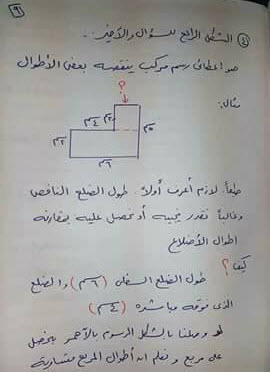 ٩
٤) الشكل الرابع للسؤال والأخير:
هو اعطائي رسم مركب ينقصه بعض الأطوال
مثال:
?
٢م
٤م
٢م
٥م
٦م
طبعاً: لازم أعرف أولاً طول الضلع الناقص
وغالباً نقدر نجيبه أو نحصل عليه بمقارنة
اطوال الأضلاع
كيف ؟
طول الضلع السفلي (٦م) والضلع
الذي فوقه مباشرة (٤م)
لو وصلنا بالشكل المرسوم بالأحمر بنحصل
على مربع ونعلم ان أطوال المربع متساوية